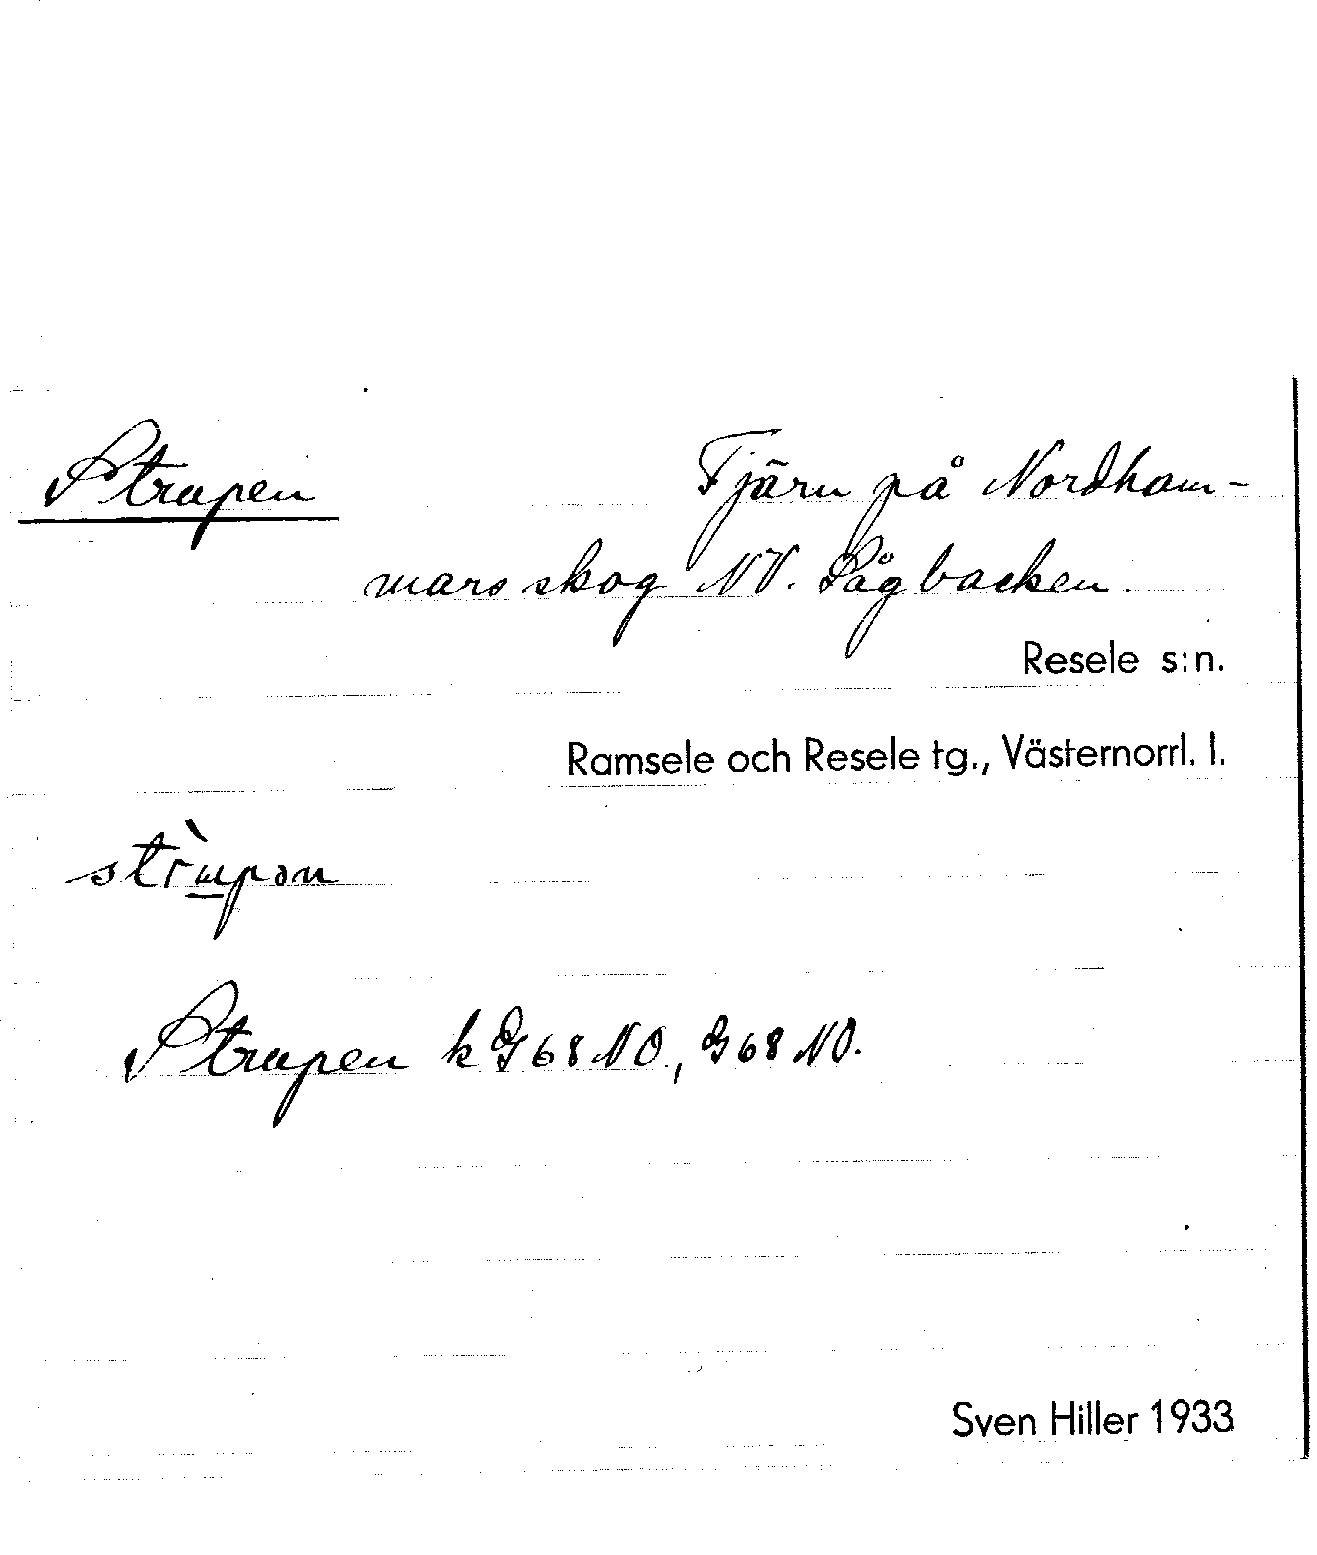 Strupen Tjärn på Nordham-
mars skog NV. Sågbacken.
Resele s:n.
Ramsele och Resele tg., Västernorrl. l.
strùpən
Strupen k G68NO, G68NO.
Sven Hiller 1933